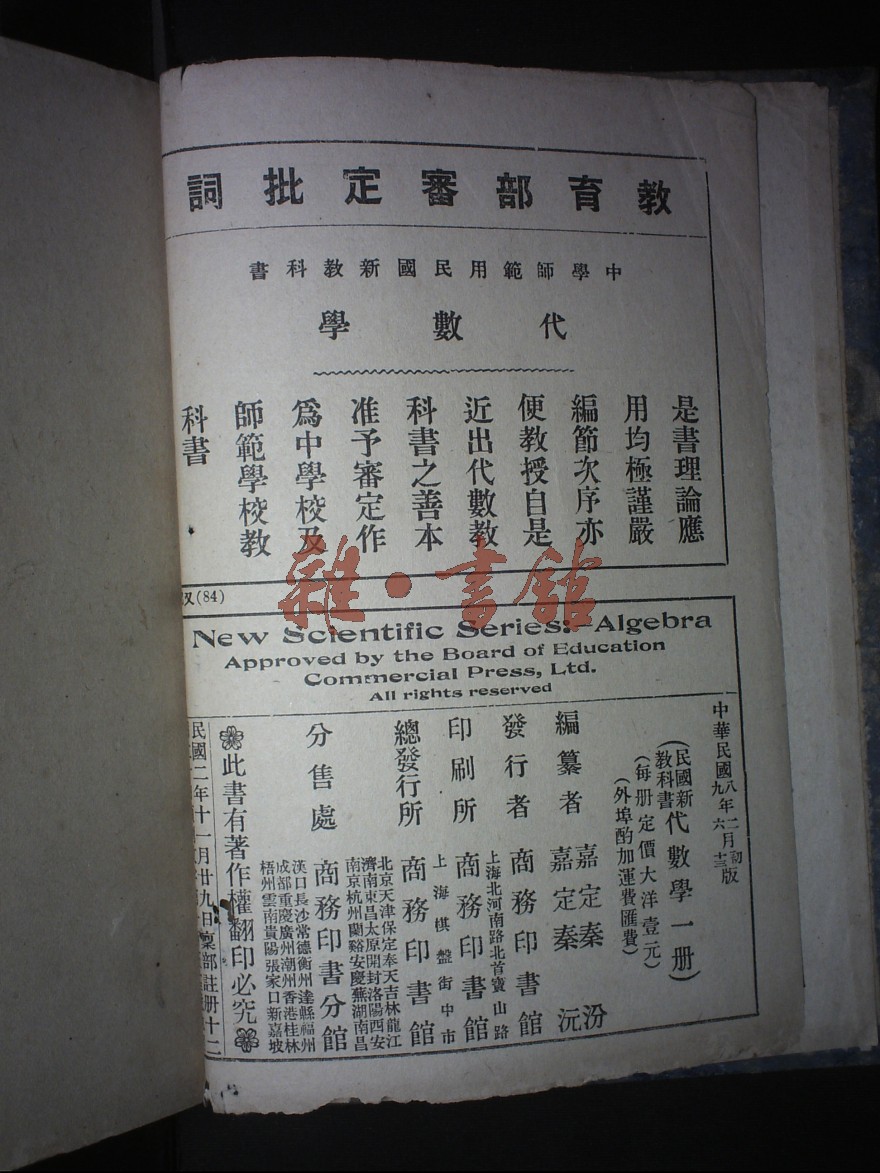 教育部審定批詞
中學師範用民國新教科書
代數學
是書理論應
用均極謹嚴
編節次序亦
便教授自是
近出代數教
科書之善本
准予審定作
爲中學校及
師範學校教
科書
(84)
雜·書館
New Scientific Series:-Algebra
Approved by the Board of Education
Commercial Press, Ltd.
All rights reserved
中華民國
月初版
(民國新
教科書
代數學一册)
(每册定價大洋壹元)
(外埠酌加運費匯費)
編纂者 嘉定秦汾 嘉定秦沅
發行者 商務印書館
上海北河南路北首寶山路
印刷所 商務印書館
上海棋盤街中市
總發行所 商務印書館
北京天津保定奉天吉林龍江
濟南東昌太原開封洛陽西安
南京杭州蘭谿安慶蕪湖南昌
分售處 商務印書分館
漢口長沙常德衡州達縣福州
成都重慶廣州潮州香港桂林
梧州雲南貴陽張家口新嘉坡
此書有著作權翻印必究
民國二年十一月廿九日稟部註册十二